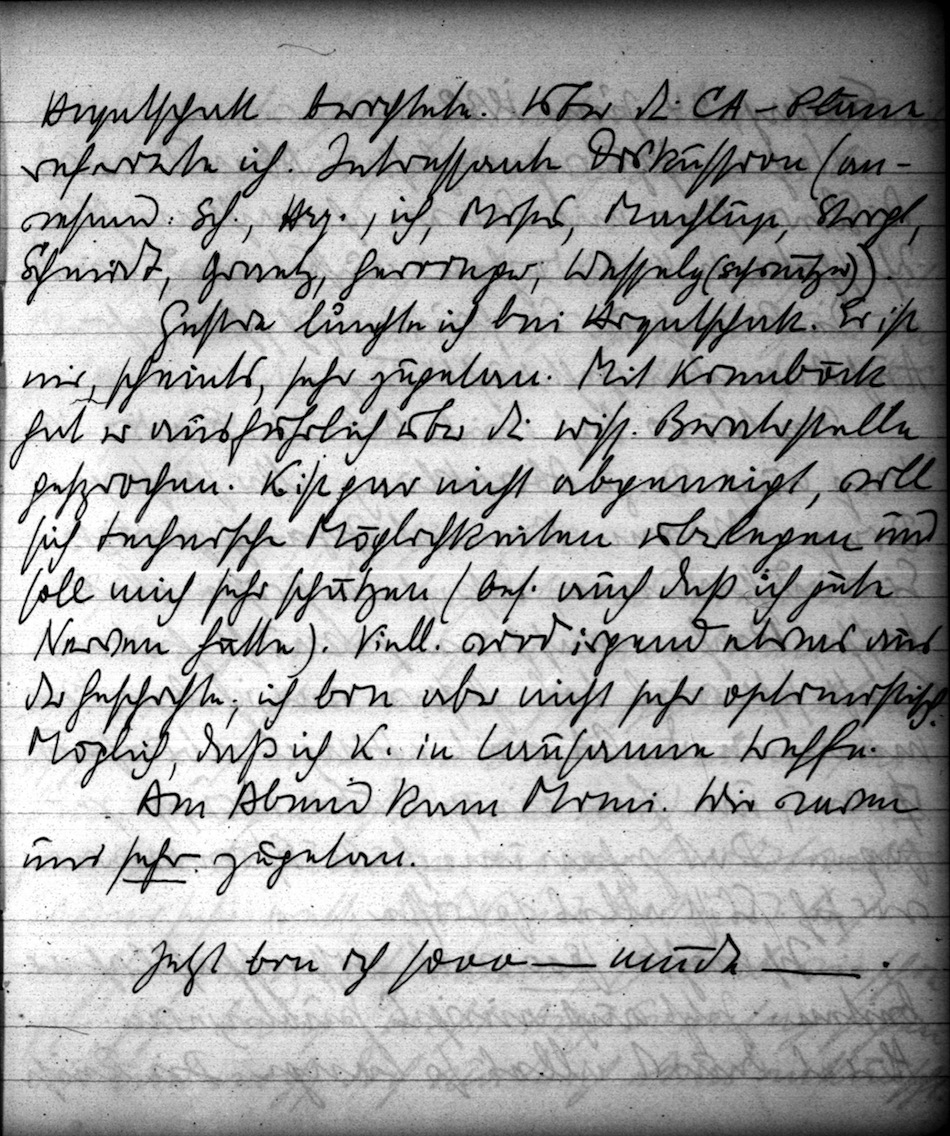 Hryntschak berichtete. Über die CA-Pläne
referierte ich. Interessante Diskussion (an-
wesend: Sch., Hry., ich, Moses, Machlup, Storgl,
Schmidt, Graetz, Herdinger, Wessely (schwitzer)).
Gestern lunchte ich bei Hryntschak. Er ist
mir, scheints, sehr zugetan. Mit Kienböck
hat er ausführlich über die wiss. Beraterstelle
gesprochen. K ist gar nicht abgeneigt, will
sich technische Möglichkeiten überlegen und
soll mich sehr schätzen (bes. auch daß ich gute
Nerven hätte). Viell. wird irgend etwas aus
der Geschichte; ich bin aber nicht sehr optimistisch.
Möglich, daß ich K. in Lausanne treffe.
Am Abend kam Mimi. Wir waren
uns sehr zugetan.
Jetzt bin ich sooo — müde — .